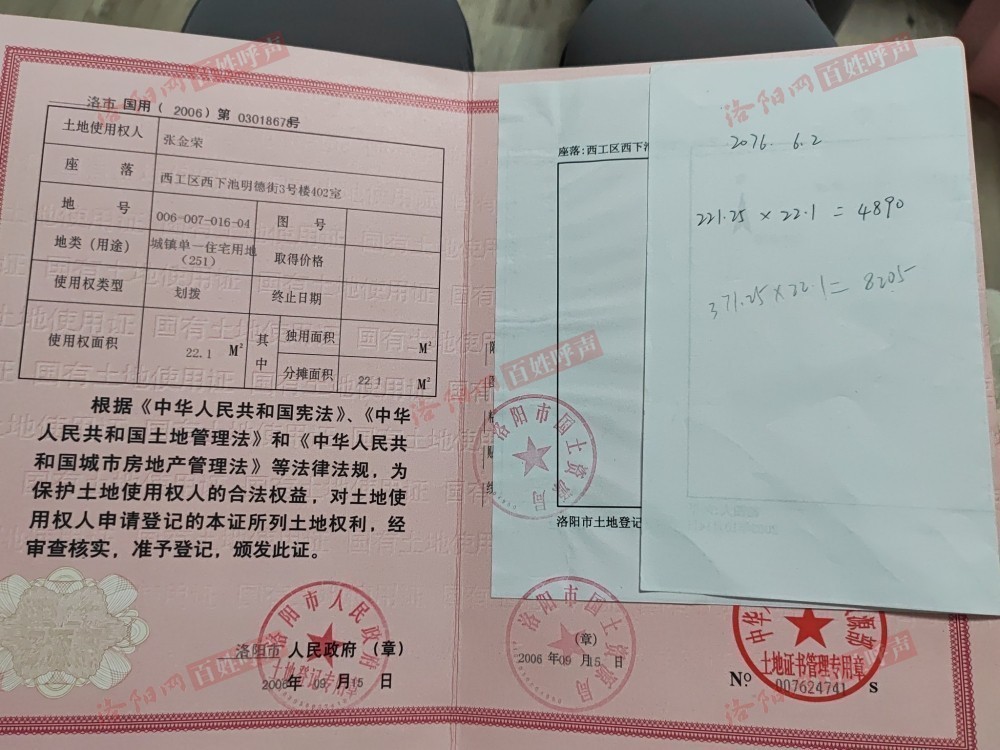 洛市 国用( 2006)第 0301867号
土地使用权人 张金荣
座 落 西工区西下池明德街3号楼402室
地 号 006-007-016-04 图 号
地类(用途) 城镇单一住宅用地(251) 取得价格
使用权类型 划拨 终止日期
使用权面积 22.1 M² 其中 独用面积 M²
分摊面积 22.1 M²
根据《中华人民共和国宪法》、《中华
人民共和国土地管理法》和《中华人民共
和国城市房地产管理法》等法律法规，为
保护土地使用权人的合法权益，对土地使
用权人申请登记的本证所列土地权利，经
审查核实，准予登记，颁发此证。
洛阳市人民政府
土地登记专用章
洛阳市 人民政府 (章)
2006年 09 月15 日
座落:西工区西下池
洛阳市国土资源局
洛阳市土地登记
2076. 6.2
221.25 × 22.1 = 4890
371.25×22.1= 8205
洛阳市国土资源局
(章)
2006 年09 月15 日
土地证书管理专用章
Nº 007624741 s
洛阳网 百姓呼声
洛阳网 百姓呼声
洛阳网 百姓呼声
洛阳网 百姓呼声
洛阳网 百姓呼声